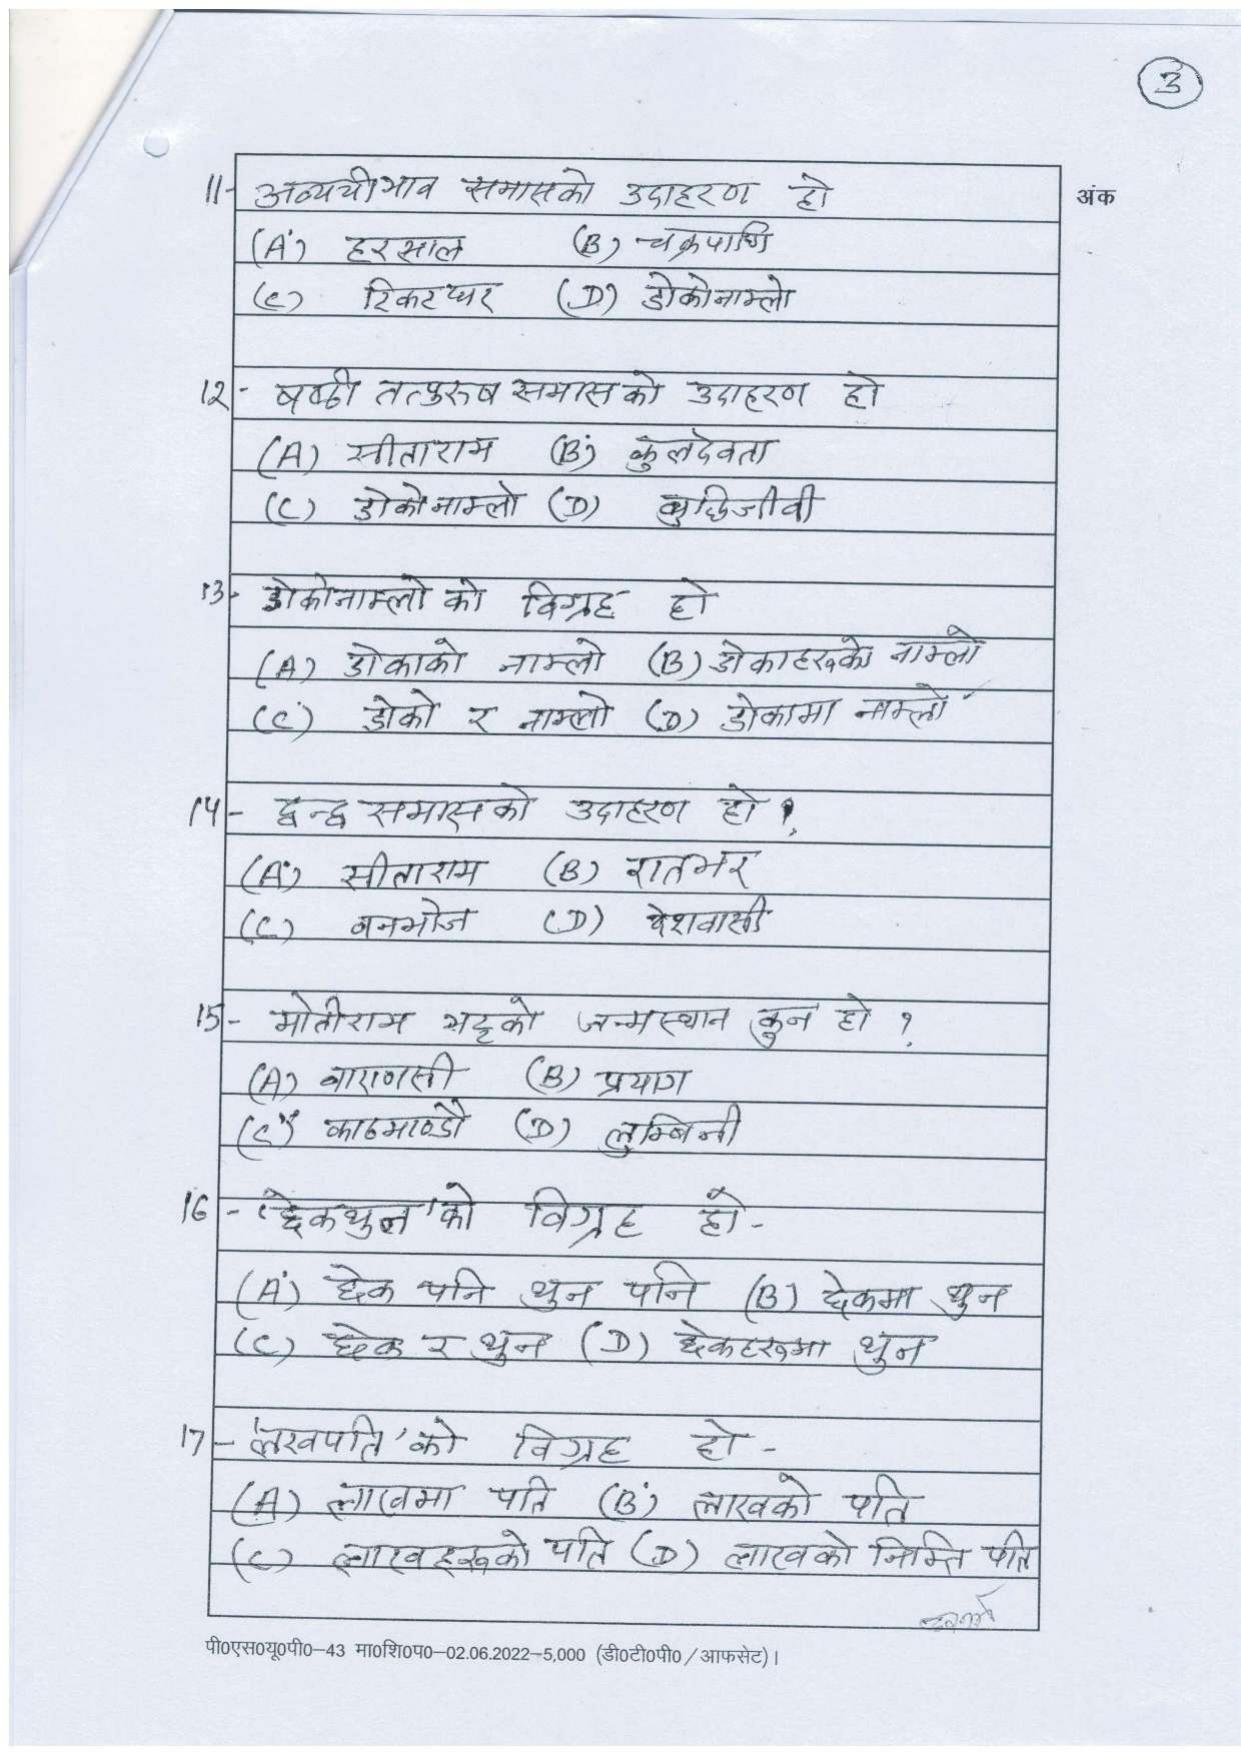 3
11- अव्ययीभाव समासको उदाहरण हो
अंक
(A) हरसाल (B) चक्रपाणि
(C) टिकटघर (D) डोकोनाम्लो
12- षष्ठी तत्पुरुष समासको उदाहरण हो
(A) सीताराम (B) कुलदेवता
(C) डोकोनाम्लो (D) बुद्धिजीवी
13- डोकोनाम्लो को विग्रह हो
(A) डोकाको नाम्लो (B) डोकाहरुको नाम्लो
(C) डोको र नाम्लो (D) डोकामा नाम्लो
14- द्वन्द्व समासको उदाहरण हो ?
(A) सीताराम (B) रातभर
(C) वनभोज (D) देशवासी
15- मोतीराम भट्टको जन्मस्थान कुन हो ?
(A) वाराणसी (B) प्रयाग
(C) काठमाण्डौ (D) लुम्बिनी
16- 'छेकथुन' को विग्रह हो -
(A) छेक पनि थुन पनि (B) छेकमा थुन
(C) छेक र थुन (D) छेकहरुमा थुन
17- 'लखपति' को विग्रह हो -
(A) लाखमा पति (B) लाखको पति
(C) लाखहरुको पति (D) लाखको निम्ति पति
पी0एस0यू0पी0—43 मा0शि0प0—02.06.2022—5,000 (डी0टी0पी0/आफसेट)।